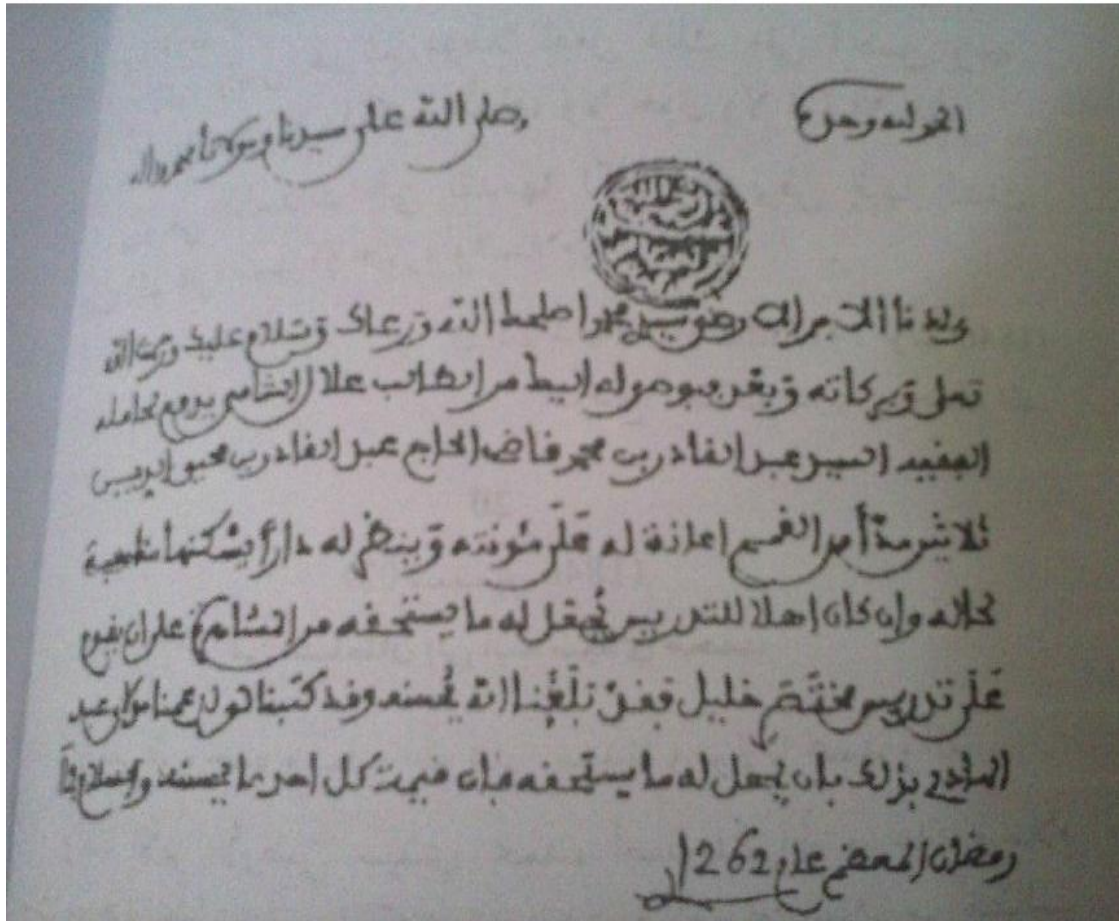 الحمد لله وحده
وصلى الله على سيدنا ومولانا محمد واله
ولدنا الابر الارضى سيدي محمد اصلحك الله ورعاك وسلام عليك ورحمت الله
تعلى وبركاته وبعد فبوصوله اليك مر الطالب علال الشامي يدفع لحامله
الفقيه السيد عبد القادر بن محمد قاضي الحاج عبد القادر بن محيي الدين
ثلاثين مدا من القمح اعانة له على مئونته وينظر له دارا يسكنها مناسبة
لحاله وإن كان اهلا للتدريس يجعل له ما يستحقه من على ان يقوم
على تدريس مختصر خليل فقد بلغنا انه يحسنه وقد كتبنا لولد عمنا مولاي عبد
الهادي بذلك بان يجعل له ما يستحقه فإن قيمة كل امرء ما يحسنه والسلام
رمضان المعظم عام 1262